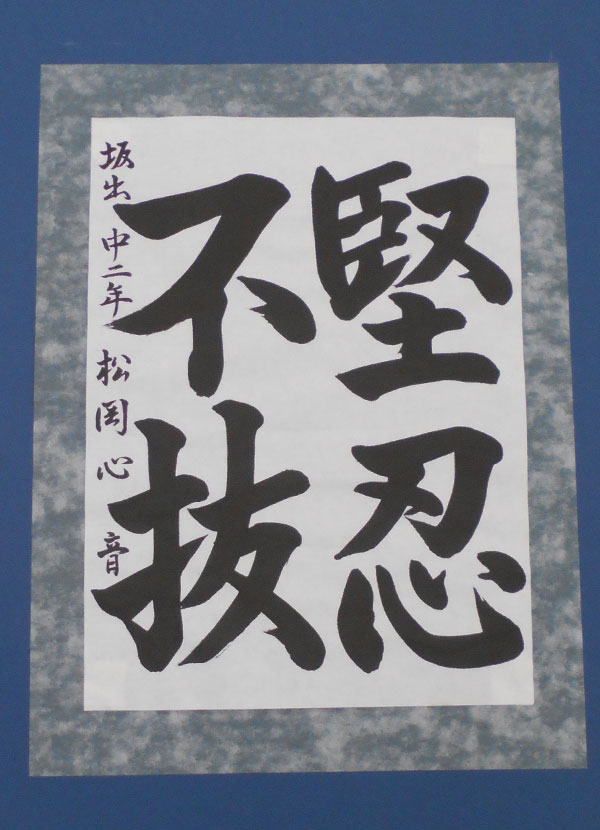 堅忍
不抜
坂出 中二年 松岡心音